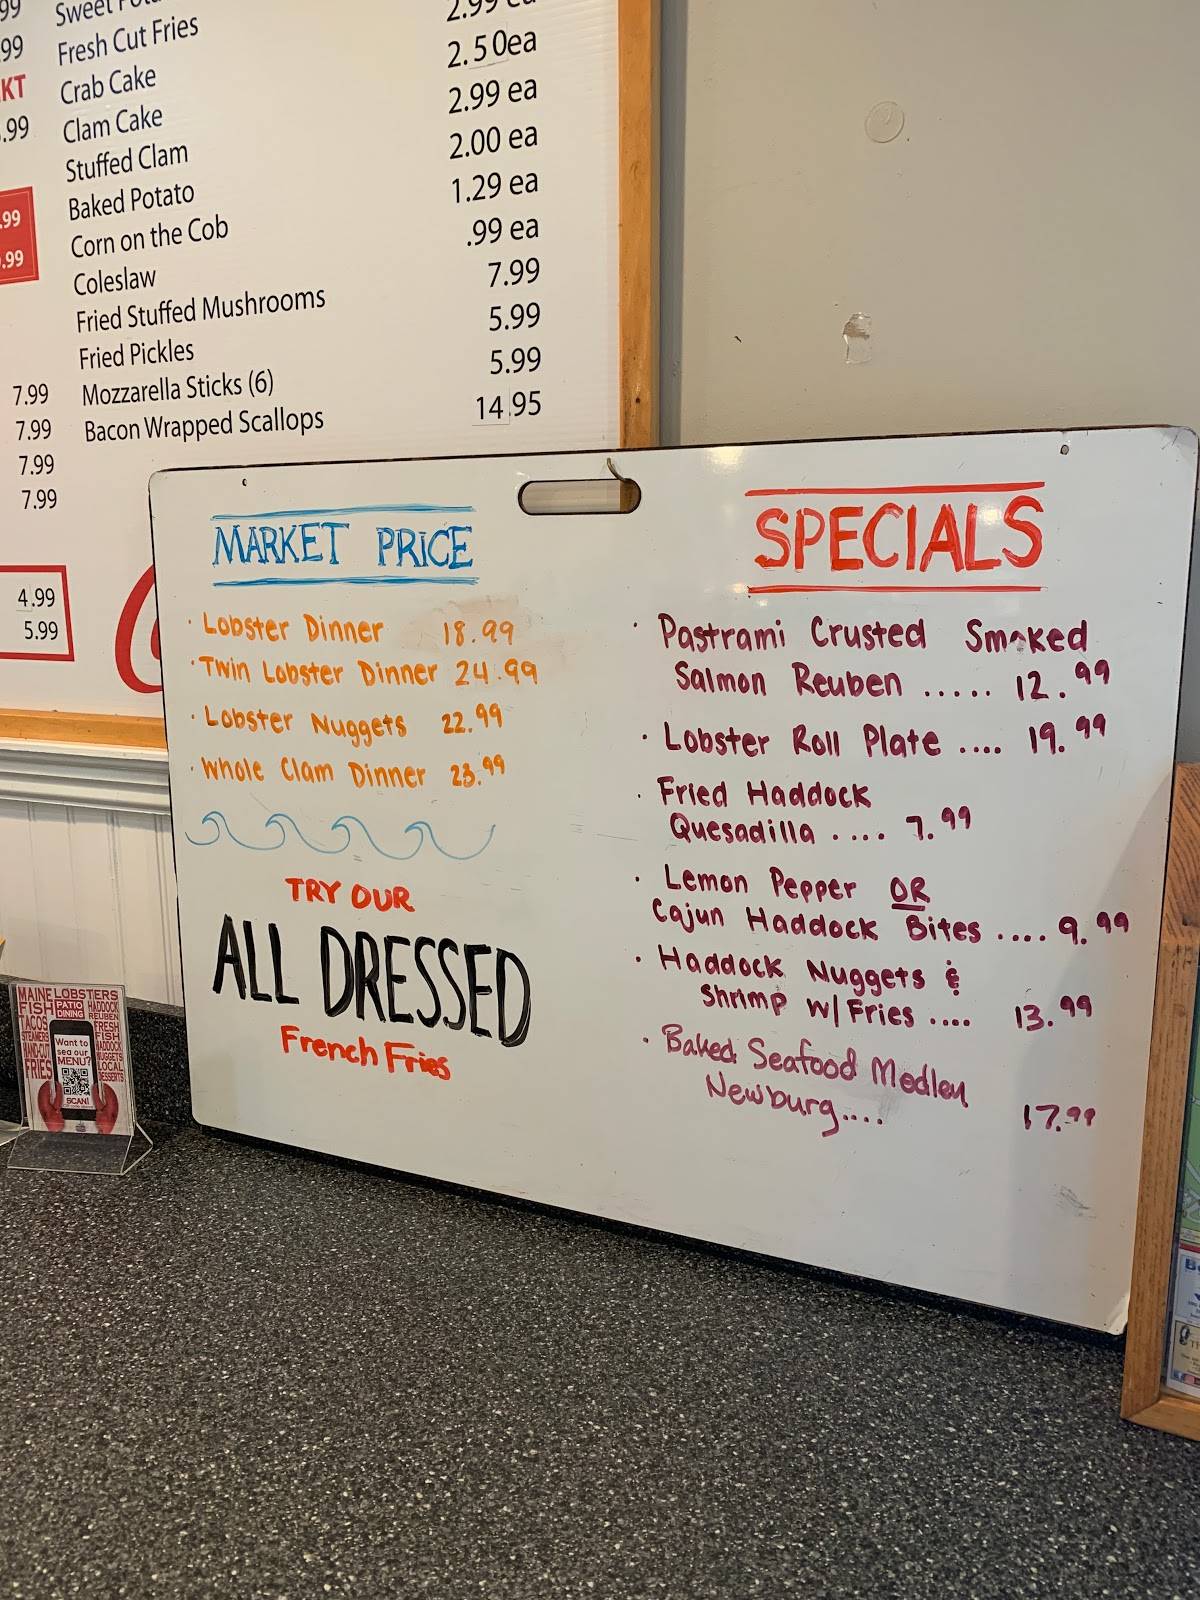 99
99
KT
.99
.99
.99
7.99
7.99
7.99
7.99
4.99
5.99
Sweet
Fresh Cut Fries
Crab Cake
Clam Cake
Stuffed Clam
Baked Potato
Corn on the Cob
Coleslaw
Fried Stuffed Mushrooms
Fried Pickles
Mozzarella Sticks (6)
Bacon Wrapped Scallops
2.99 ea
2.50ea
2.99 ea
2.00 ea
1.29 ea
.99 ea
7.99
5.99
5.99
14.95
MARKET PRICE
· Lobster Dinner 18.99
· Twin Lobster Dinner 24.99
· Lobster Nuggets 22.99
· Whole Clam Dinner 23.99
TRY OUR
ALL DRESSED
French Fries
SPECIALS
· Pastrami Crusted Smoked
Salmon Reuben ..... 12.99
· Lobster Roll Plate .... 19.99
· Fried Haddock
Quesadilla .... 7.99
· Lemon Pepper OR
Cajun Haddock Bites .... 9.99
· Haddock Nuggets &
Shrimp w/ Fries .... 13.99
· Baked Seafood Medley
Newburg.... 17.99
MAINE LOBSTERS
FISH
TACOS
STEAMERS
HAND-CUT
FRIES
PATIO
DINING
HADDOCK
REUBEN
FRESH
FISH
HADDOCK
NUGGETS
LOCAL
DESSERTS
Want to
see our
MENU?
SCAN!